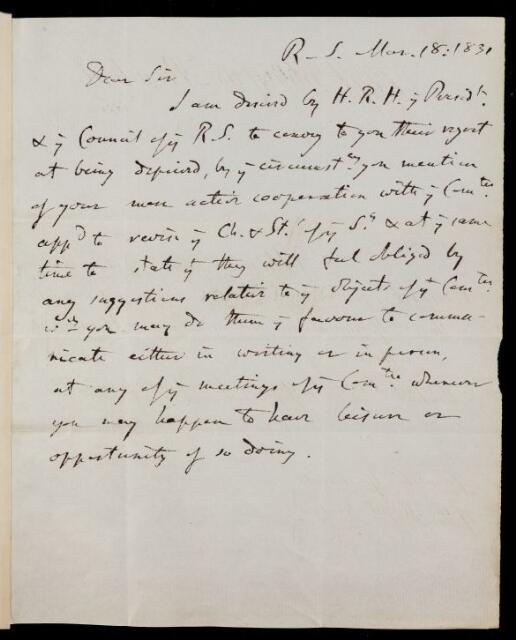 R. S. Mar. 18: 1831
Dear Sir
I am desired by H. R. H. y Presidt.
& y Council of y R. S. to convey to you their regret
at being deprived, by y circumstces you mention
of your more active cooperation with y Comtee
appd to revise y Ch. & St. of y Sy & at y same
time to state y they will feel obliged by
any suggestions relative to y objects of y Comtee
wch you may do them y favour to commu-
nicate either in writing or in person,
at any of y meetings of y Comtee whenever
you may happen to have leisure or
opportunity of so doing.